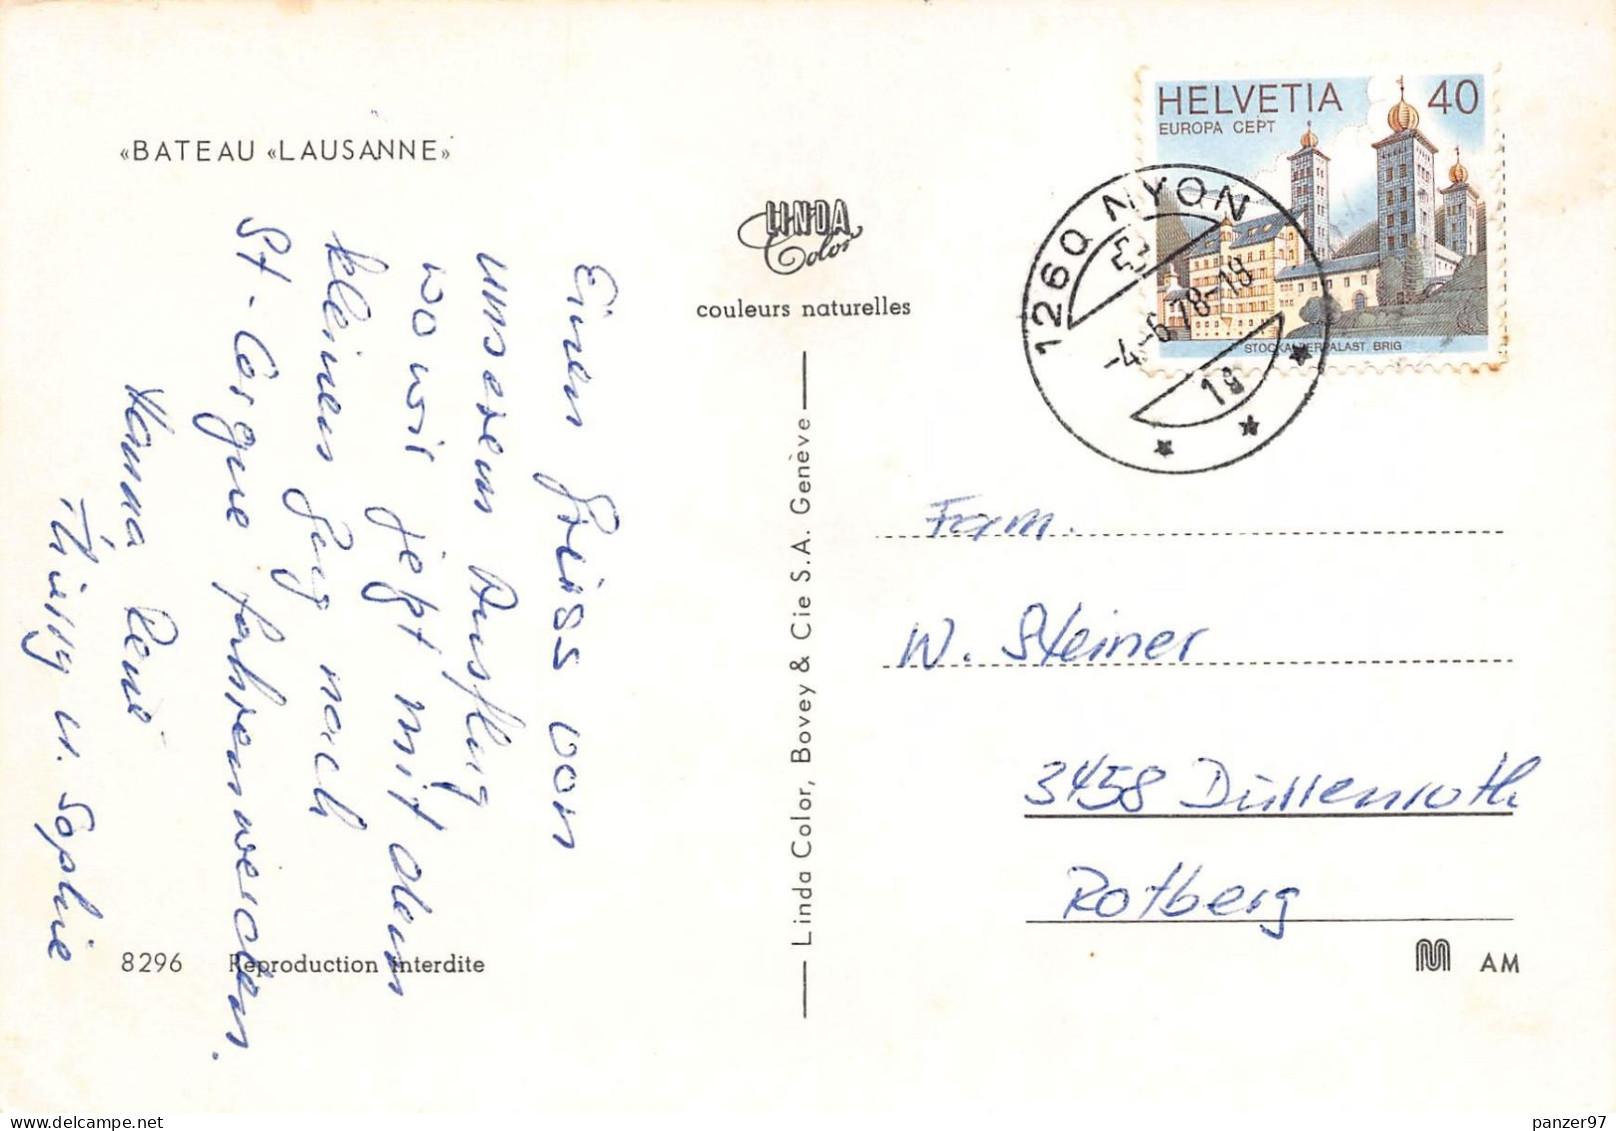 «BATEAU «LAUSANNE»
Einen Gruss von
unserem Ausflug
wo wir jetzt mit dem
kleinen Zug nach
St-Cergue fahren werden.
Hanna René
u. Sophie
8296 Reproduction interdite
LINDA
Color
couleurs naturelles
Linda Color, Bovey & Cie S.A. Genève
HELVETIA 40
EUROPA CEPT
STOCKALPERPALAST BRIG
1260 NYON
-4.-6.78-19
Fam.
W. Steiner
3458 Dürrenroth
Rotberg
M AM
panzer97